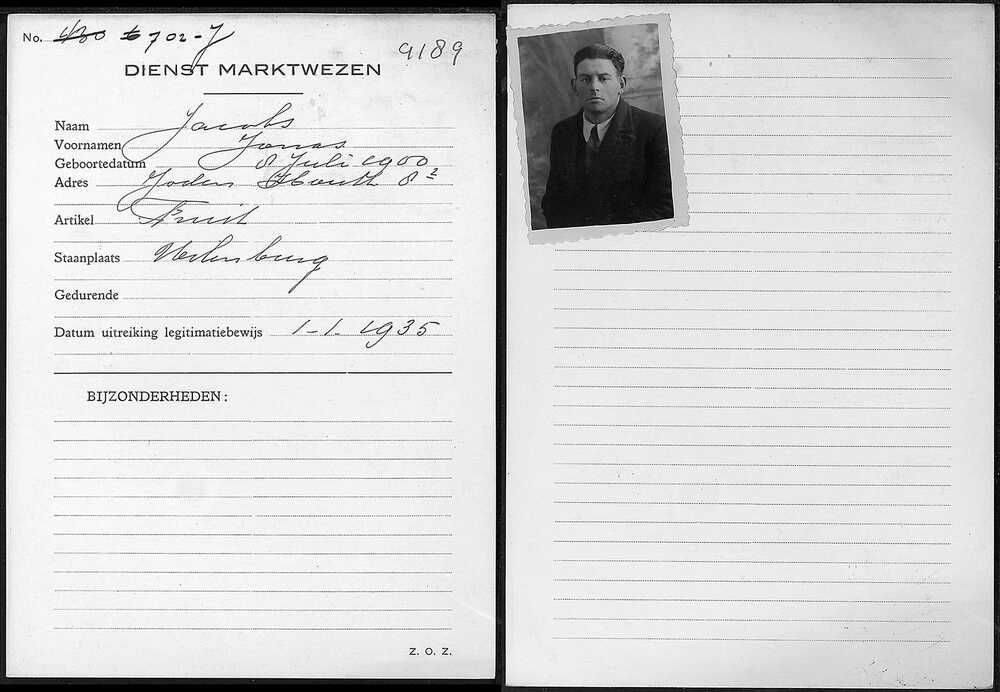 No. 702-J
9189
DIENST MARKTWEZEN
Naam Jacobs
Voornamen Jonas
Geboortedatum 8 Juli 1900
Adres Joden Houtt 8²
Artikel Fruit
Staanplaats Uilenburg
Gedurende
Datum uitreiking legitimatiebewijs 1-1. 1935
BIJZONDERHEDEN:
Z. O. Z.